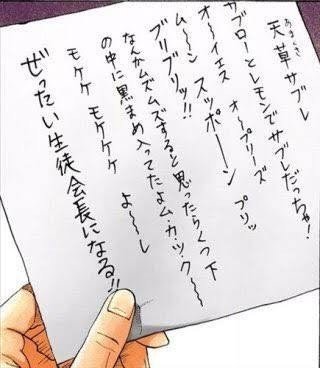 天草サブレ
あまくさ
サブローとレモンでサブレだっちゃ!
オ～イエス オ～プリーズ
ム～～ン スッポーン プリッ
ブリブリッ!!
なんかムズムズすると思ったらくつ下
の中に黒まめ入ってたよムカック～～
モケケ モケケケ よ～～し
ぜったい生徒会長になる!!